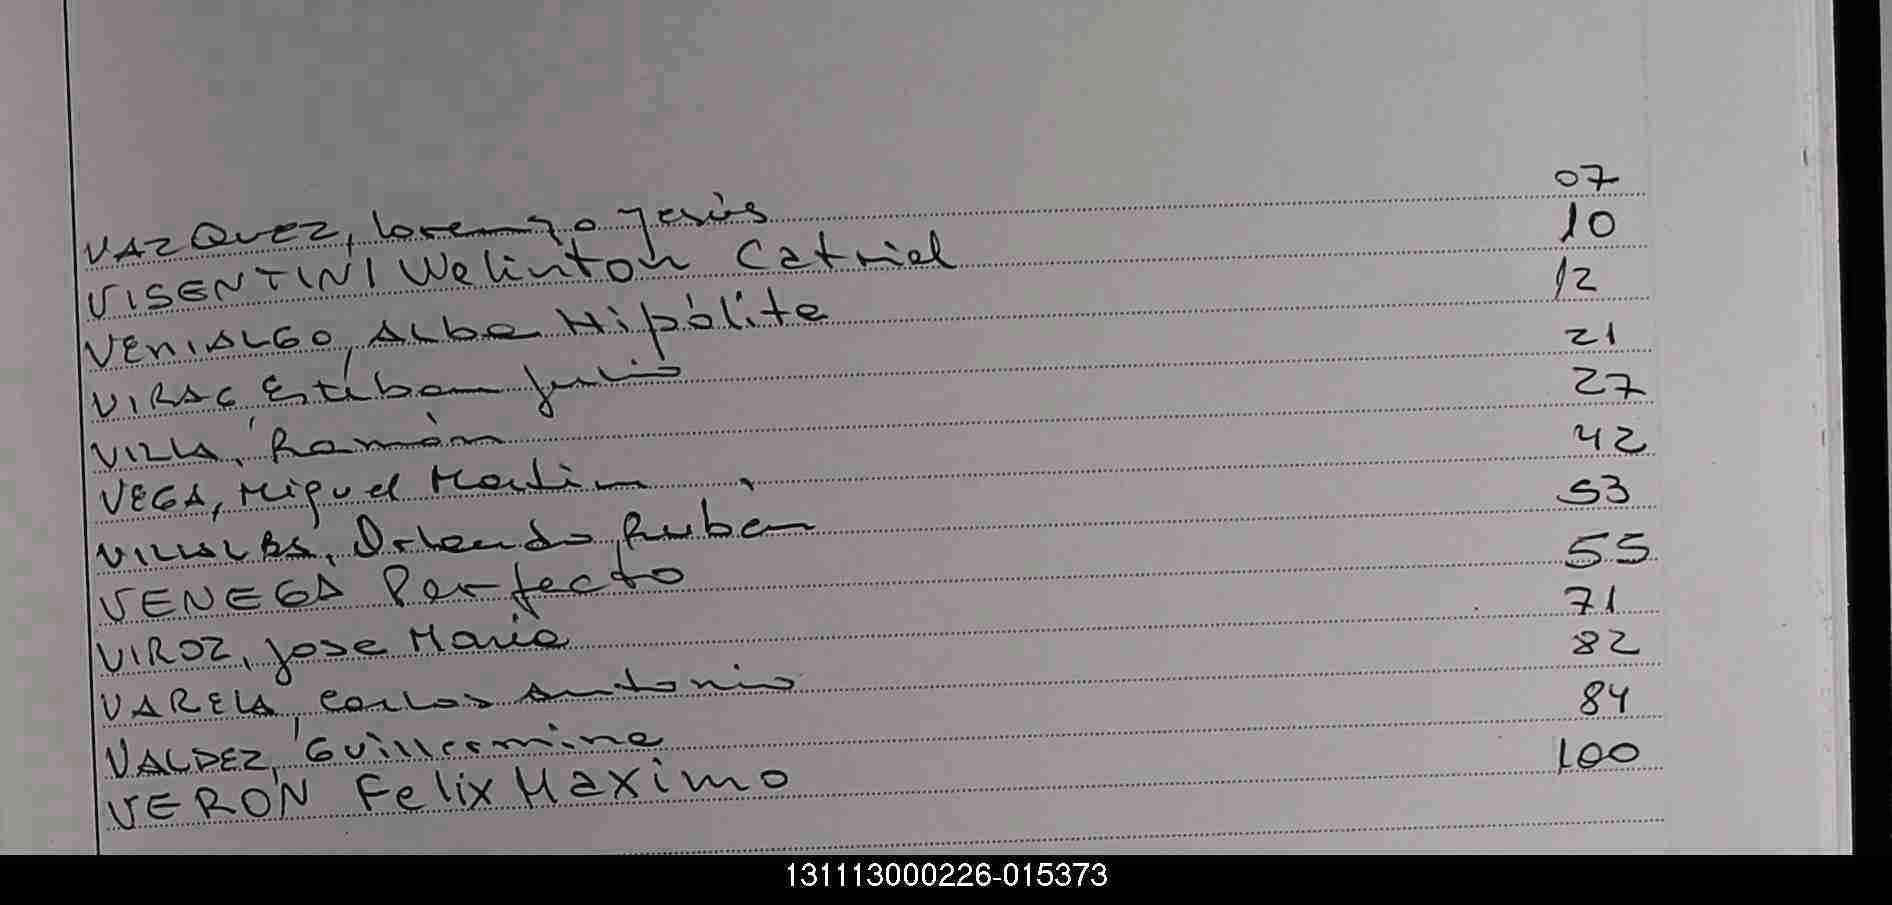 VAZQUEZ, Lorenzo Jesús 07
VISENTINI Welinton Catriel 10
VENIALGO, Alba Hipólita 12
VIRAG Esteban Julio 21
VILLA, Ramón 27
VEGA, Miguel Martin 42
VILLALBA, Orlando Rubén 53
VENEGA Perfecto 55
VIROZ, Jose Maria 71
VARELA, Carlos Antonio 82
VALDEZ, Guillermina 84
VERÓN Felix Maximo 100
131113000226-015373